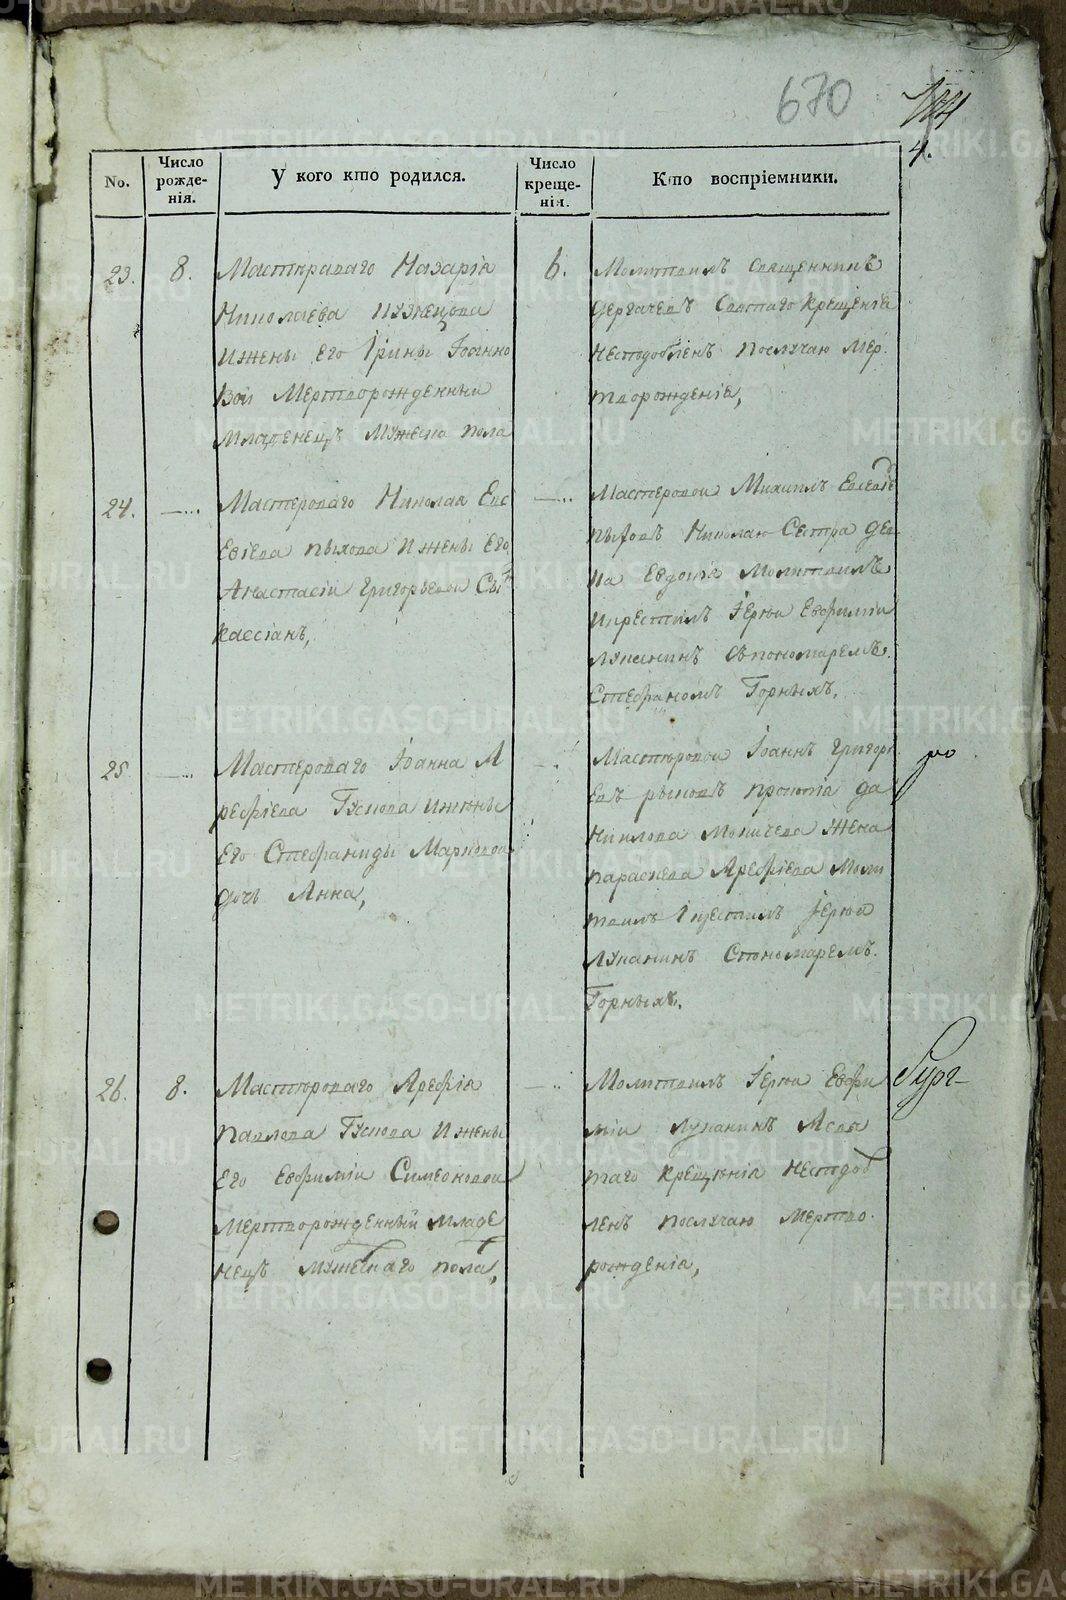 670
4.
No.
Число рожде-нія.
У кого кто родился.
Число креще-нія.
Кто воспріемники.
23.
8.
Мастероваго Назарія
Николаева Кузнецова
и жены его Ірины Іоанно
вой Мерторожденный
младенецъ мужеска пола
6.
Молитвилъ священникъ
Сергачевъ Святаго Крещенія
несподобленъ послучаю мер
творожденія,
24.
Мастероваго Николая Евс
евіева Пыхова и жены его
Анастасіи Григорьевой Сынъ
Кассіанъ,
Мастеровой Михаилъ Евсевіе
Пыховъ Николаю Сестра дев
ка Евдокія Молитвилъ
и крестилъ Іерей Евфимій
Луканинъ съ пономаремъ
Стефаномъ Горныхъ,
25
Мастероваго Іоанна А
рефіева Гускова и жены
его Стефаниды Марковой
дочь Анна,
Мастеровой Іоаннъ Григорь
евъ Рыковъ Прокопія Да
нилова жена
Параскева Арефіева Моли
твилъ і крестилъ Іерей
Луканинъ Спономаремъ
Горныхъ,
26.
8.
Мастероваго Арефія
Павлова Гускова и жены
его Евфиміи Симеоновой
Мертворожденный младе
нецъ мужескаго пола,
Молитвилъ Іерей Евфи
мій Луканинъ А свя
таго крещенія несподоб
ленъ послучаю мертво
рожденія,
METRIKI.GASO-URAL.RU